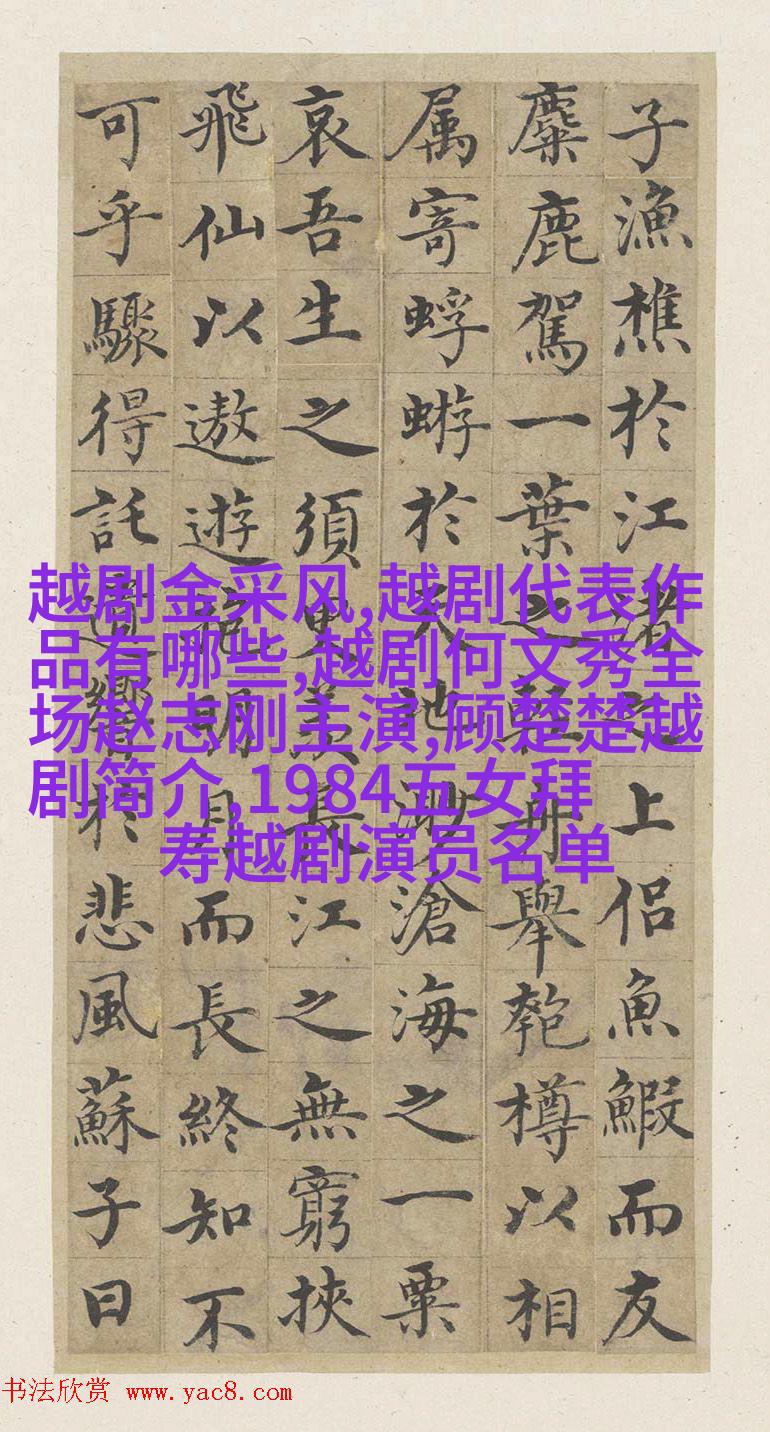 子漁樵於江渚之上侶魚鰕而友
麋鹿駕一葉之輕舟舉匏樽以相
属寄蜉蝣於天地渺滄海之一粟
哀吾生之須臾羨長江之無窮挾
飛仙以遨遊抱明月而長終知不
可乎驟得託遺響於悲風蘇子曰
越剧金采风,越剧代表作
品有哪些,越剧何文秀全
场赵志刚主演,顾楚楚越
剧简介,1984五女拜
寿越剧演员名单
书法欣赏 www.yac8.com